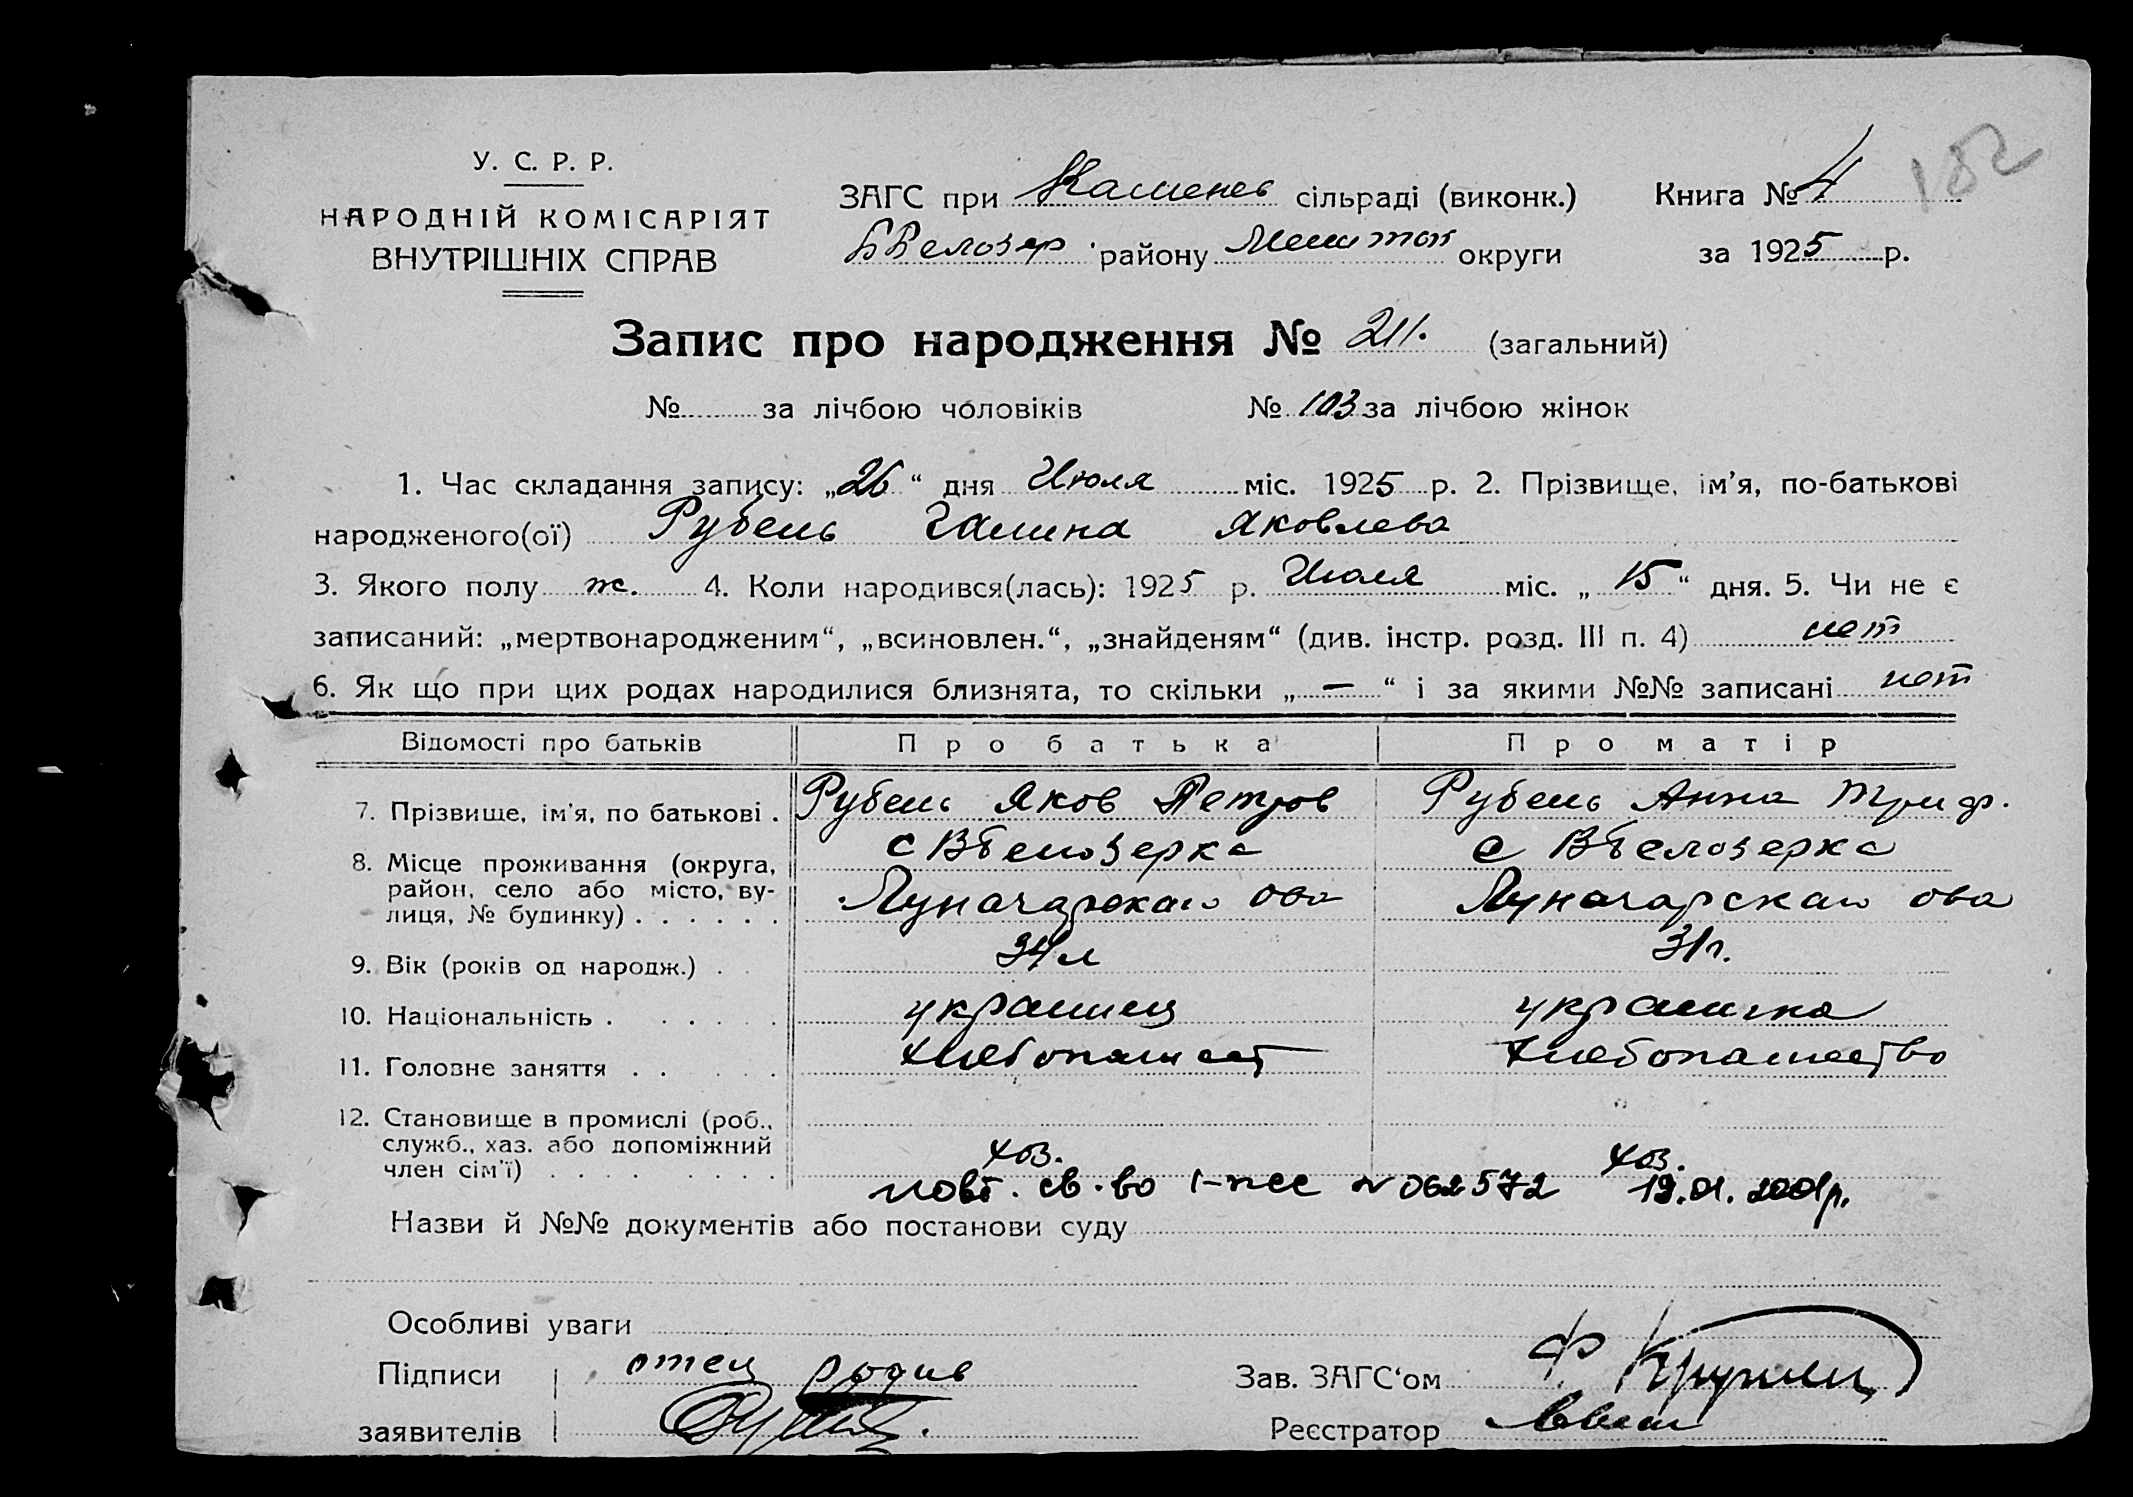 182
У. С. Р. Р.
НАРОДНІЙ КОМІСАРІЯТ
ВНУТРІШНІХ СПРАВ
ЗАГС при Каменев сільраді (виконк.)
Книга № 4
ББелозер району Мелитоп округи
за 1925 р.
Запис про народження № 211. (загальний)
№ за лічбою чоловіків № 103 за лічбою жінок
1. Час складання запису: „26“ дня Июля міс. 1925 р. 2. Прізвище, ім'я, по-батькові
народженого(ої) Рубель Галина Яковлева
3. Якого полу ж. 4. Коли народився(лась): 1925 р. Июля міс. „15“ дня. 5. Чи не є
записаний: „мертвонародженим“, „всиновлен.“, „знайденям“ (див. інстр. розд. III п. 4) нет
6. Як що при цих родах народилися близнята, то скільки „—“ і за якими №№ записані нет
Відомості про батьків Про батька Про матір
7. Прізвище, ім'я, по батькові . Рубель Яков Петров Рубель Анна Триф.
8. Місце проживання (округа, с ВБелозерка с ВБелозерка
район, село або місто, ву-
лиця, № будинку) . . . . . . Луначарская ова Луначарская ова
9. Вік (років од народж.) . . 34 л 31 г.
10. Національність . . . . . . украинец украинка
11. Головне заняття . . . . . хлебопашест хлебопашество
12. Становище в промислі (роб.,
служб., хаз. або допоміжний
член сім'ї) . . . . . . . . хоз. хоз.
повт. св-во І-пее № 062572 19.01.2001р.
Назви й №№ документів або постанови суду
Особливі уваги
Підписи отец
заявителів
Зав. ЗАГС'ом
Реєстратор